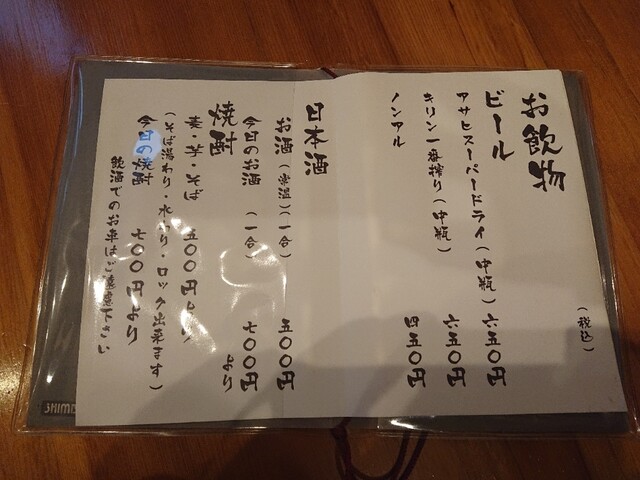 お飲物
(税込)
ビール
アサヒスーパードライ(中瓶) 六五〇円
キリン一番搾り(中瓶) 六五〇円
ノンアル 四五〇円
日本酒
お酒(常温)(一合) 五〇〇円
今日のお酒(一合) 七〇〇円より
焼酎
麦・芋・そば 五〇〇円より
(そば湯わり・水わり・ロック出来ます)
今日の焼酎 七〇〇円より
飲酒でのお車はご遠慮下さい